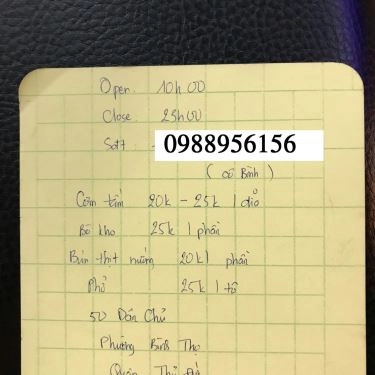 Open: 10h00
Close 23h00
Sđt: 0988956156
(cô Bình)
Cơm tấm 20k - 25k 1 dĩa
Bò kho 25k 1 phần
Bún thịt nướng 20k 1 phần
Phở 25k 1 tô
50 Dân Chủ
Phường Bình Thọ
Quận Thủ Đức